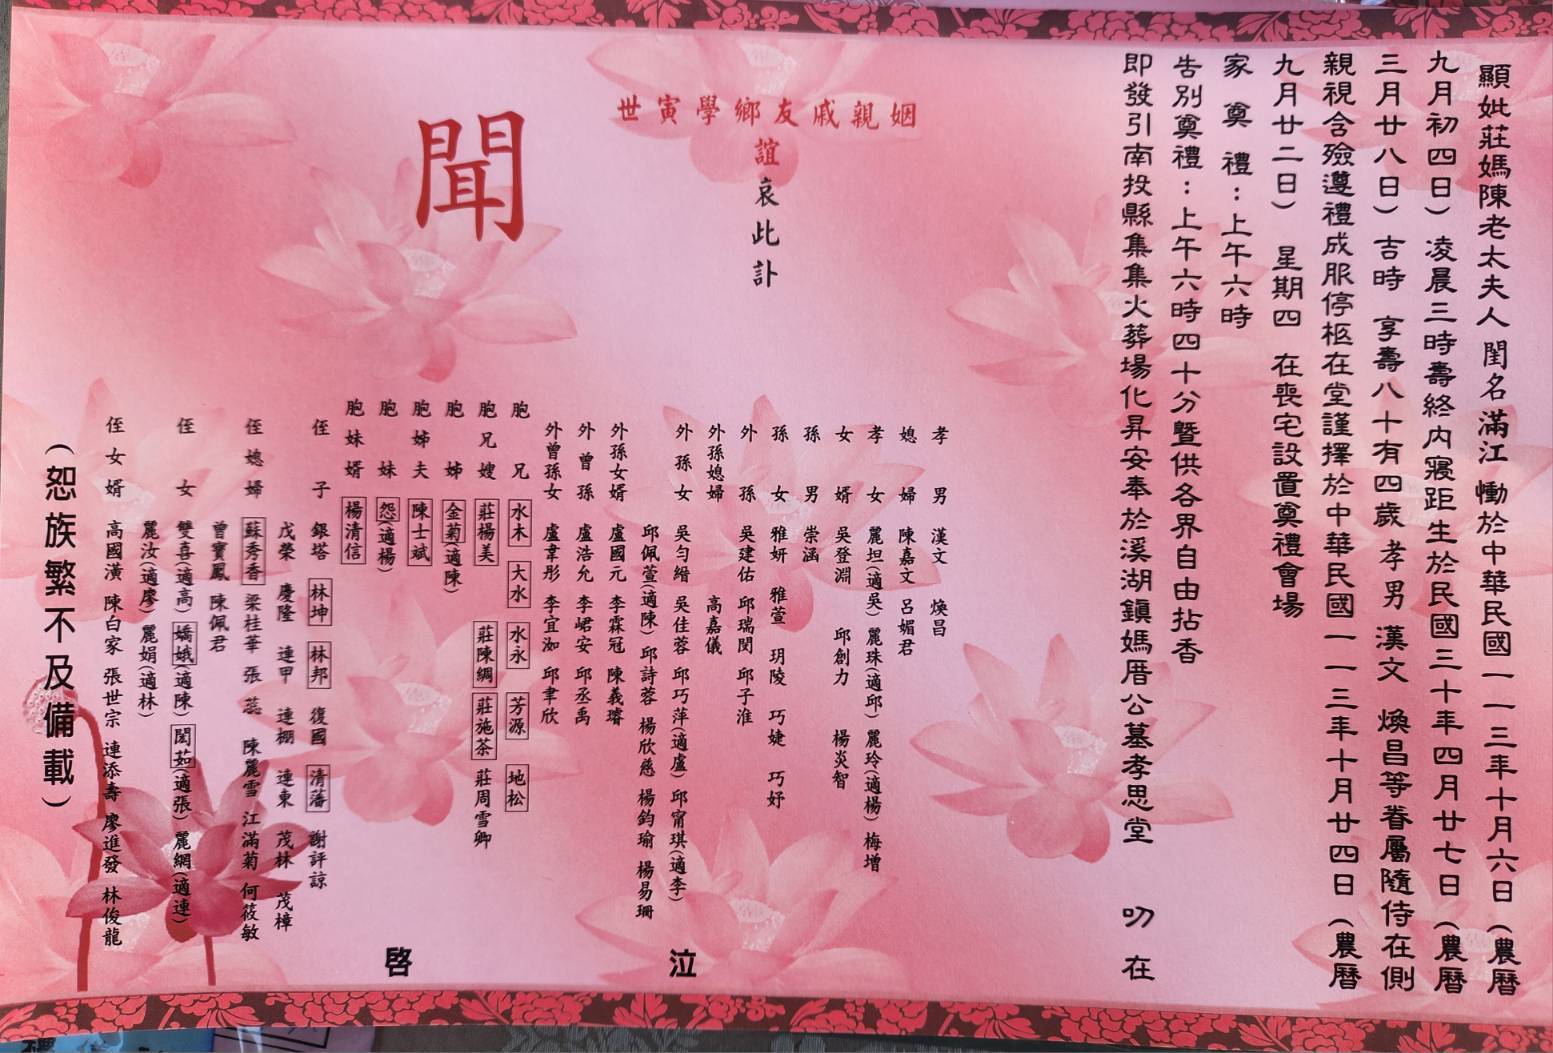 顯妣莊媽陳老太夫人閨名滿江慟於中華民國一一三年十月六日(農曆
九月初四日)凌晨三時壽終內寢距生於民國三十年四月廿七日(農曆
三月廿八日)吉時 享壽八十有四歲 孝男 漢文 煥昌等眷屬隨侍在側
親視含殮遵禮成服停柩在堂謹擇於中華民國一一三年十月廿四日(農曆
九月廿二日) 星期四 在喪宅設置奠禮會場
家奠禮:上午六時
告別奠禮:上午六時四十分暨供各界自由拈香
即發引南投縣集集火葬場化昇安奉於溪湖鎮媽厝公墓孝思堂 叨在
姻親戚友鄉學寅世
誼哀此訃
聞
孝男 漢文 煥昌
媳婦 陳嘉文 呂媚君
孝女 麗坦(適吳) 麗珠(適邱) 麗玲(適楊) 梅增
女婿 吳登淵 邱創力 楊炎智
孫男 崇涵
孫女 雅妍 雅萱 玥陵 巧婕 巧妤
外孫 吳建佑 邱瑞閔 邱子淮
外孫媳婦 高嘉儀
外孫女 吳勻縉 吳佳蓉 邱巧萍(適盧) 邱甯琪(適李)
邱佩萱(適陳) 邱詩蓉 楊欣慈 楊鈞瑜 楊易珊
外孫女婿 盧國元 李霖冠 陳義璿
外曾孫 盧浩允 李峮安 邱丞禹
外曾孫女 盧韋彤 李宜洳 邱聿欣
泣
胞兄 水木 大水 水永 芳源 地松
胞兄嫂 莊楊美 莊陳綢 莊施茶 莊周雪卿
胞姊 金菊(適陳)
胞姊夫 陳士斌
胞妹 怨(適楊)
胞妹婿 楊清信
侄子 銀塔 林坤 林邦 復國 清藩 謝評諒
戊榮 慶隆 連甲 連棚 連東 茂林 茂樟
侄媳婦 蘇秀香 梁桂華 張蕊 陳麗雪 江滿菊 何筱敏
曾寶鳳 陳佩君
侄女 雙喜(適高) 嬌娥(適陳) 閎茹(適張) 麗網(適連)
麗汝(適廖) 麗娟(適林)
侄女婿 高國潢 陳白家 張世宗 連添壽 廖進發 林俊龍
啓
(恕族繁不及備載)